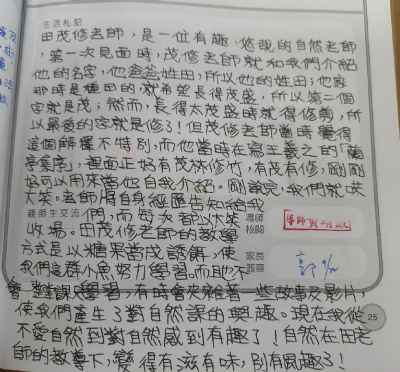 生活札記
田茂修老師，是一位有趣、悠哉的自然老師
，第一次見面時，茂修老師就和我們介紹
他的名字，他爸爸姓田，所以他的姓田；他家
那時是種田的就希望長得茂盛，所以第二個
字就是茂；然而，長得太茂盛時就得修剪，所
以最後的字就是修！但茂修老師當時覺得
這個解釋不特別，而他當時在寫王羲之的「蘭
亭集序」，裡面正好有茂林修竹，有茂有修，剛剛
好可以用來當他自我介紹。剛說完，我們就哄
大笑。老師將自身經歷告知給我
親師生交流
們，而每次都以大笑
收場。田茂修老師的教學
方式是以糖果當成誘餌，使
我們這群小魚努力學習。而他不
會
學習，有時會夾雜著一些故事及影片，
使我們產生了對自然課的興趣。現在我從
不愛自然到對自然感到有趣了！自然在田老
師的教導下，變得有滋有味，別有風趣了！
導師
校閱
家長
簽章
25